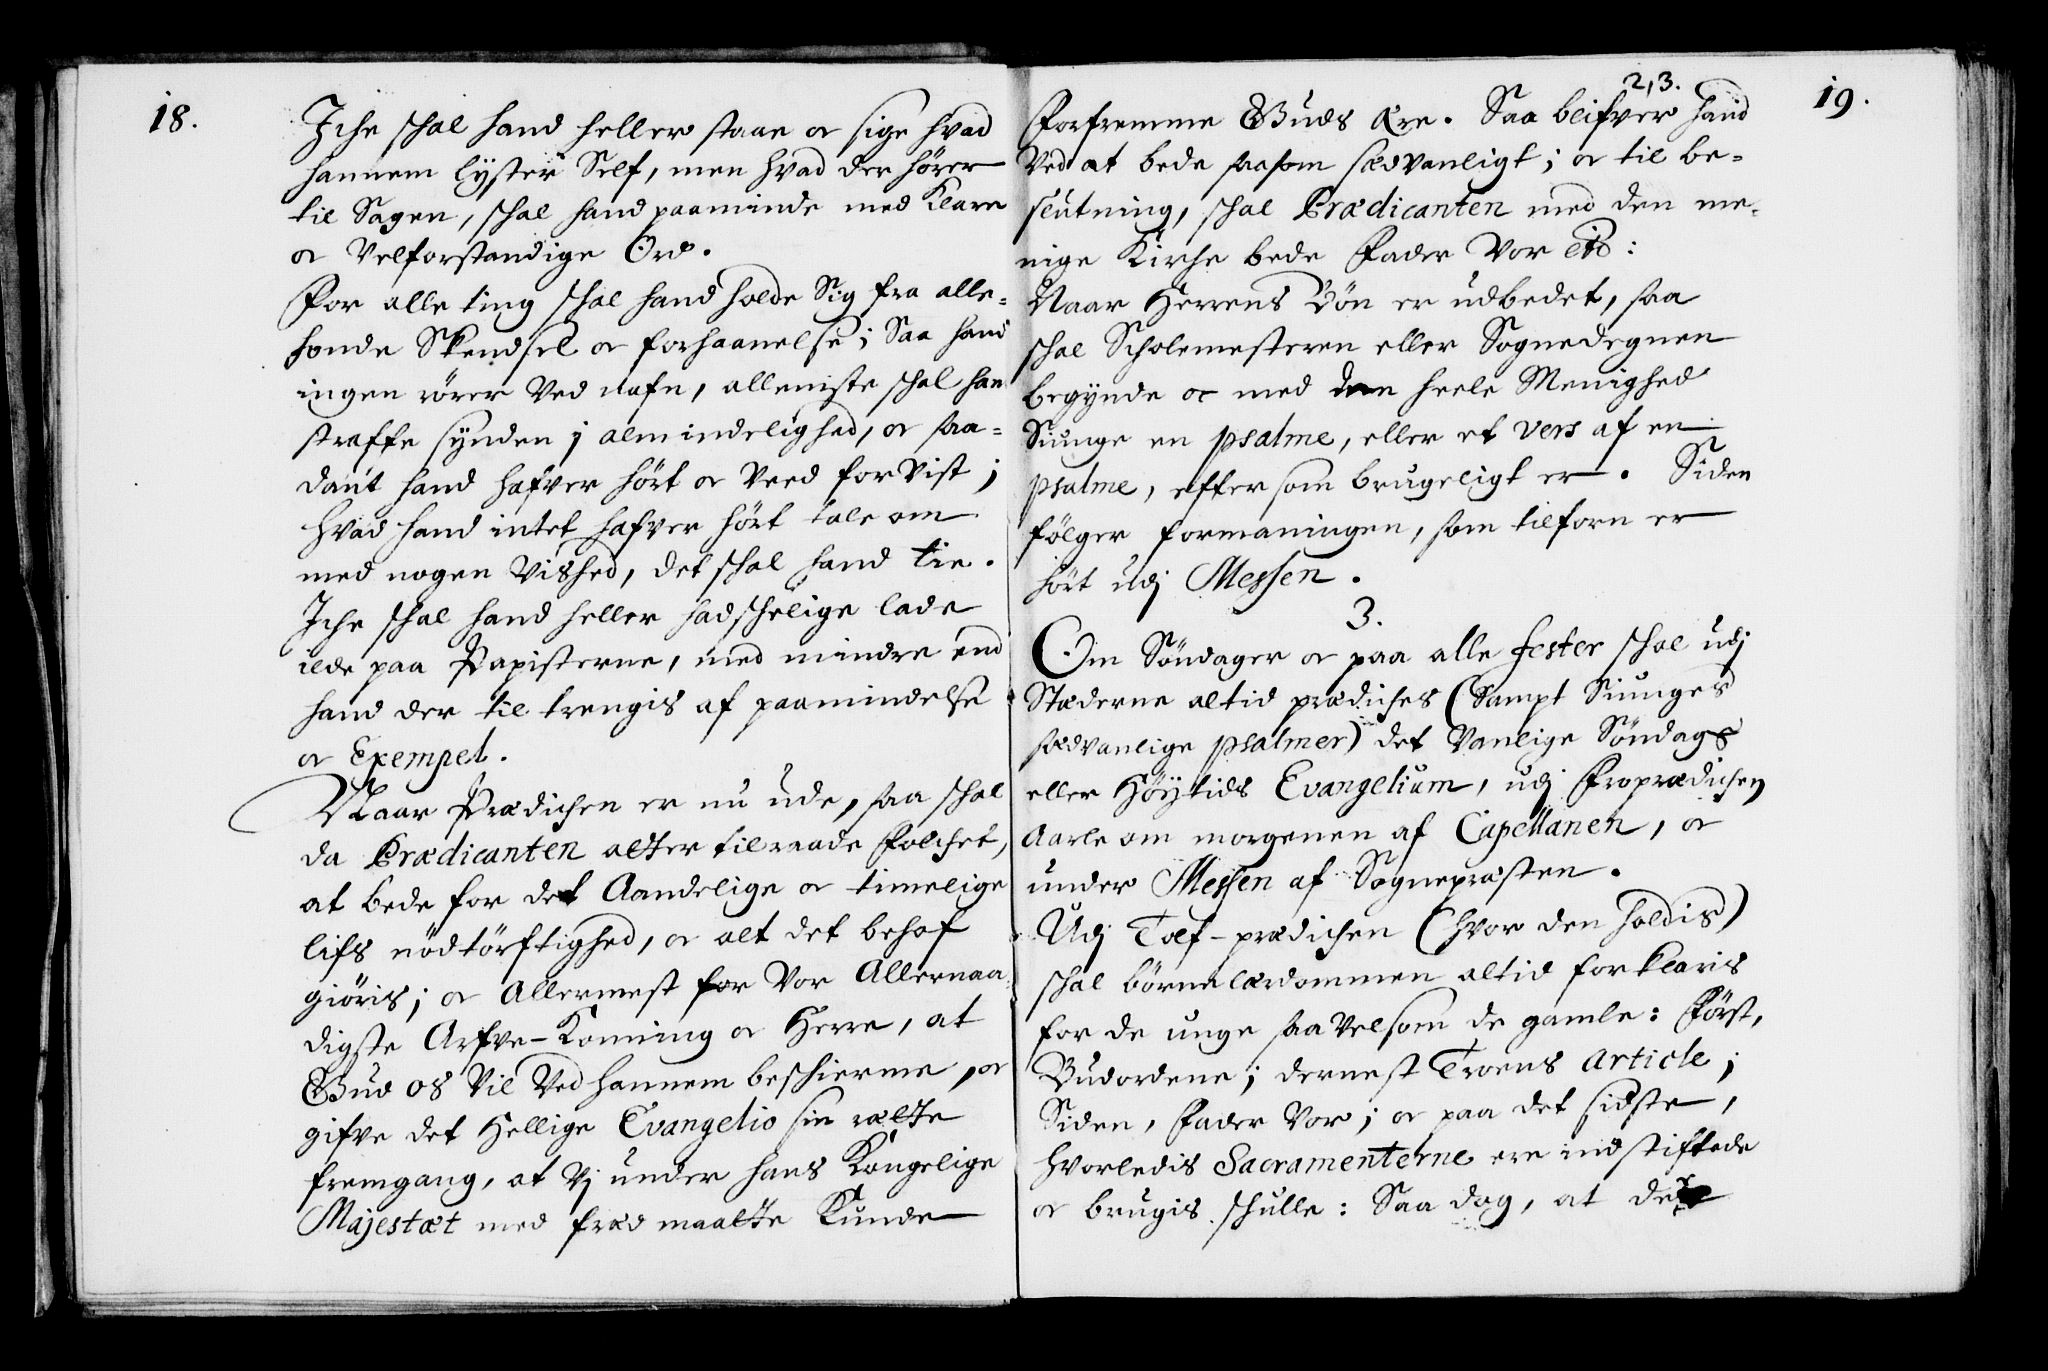 18.
Iche schal hand heller staae oc sige hvad
hannem lyster Self, men hvad der hører
til Sagen, schal hand paaminde med Klare
oc Velforstandige Ord.
For alle ting schal hand holde Sig fra alle-
honde Skendsel oc forhaanelse; Saa hand
ingen rører Ved nafn, alleniste schal han
straffe synden j almindelighed, oc saa-
daut hand hafver hört oc Veed for Vist;
hvad hand intet hafver hört tale om
med nogen Vished, det schal hand tie.
Iche schal hand heller hadschelige lade
ilde paa Papisterne, med mindre end
hand der til trengis af paamindelse
oc Exempel.
Naar Prædichen er nu ude, saa schal
da Prædicanten atter tilraade Folchet,
at bede for det Aandelige oc timelige
lifs nödtörftighed, oc alt det behof
giöris; oc Allermest for Vor Allernaa
digste Arfve-Konning oc Herre, at
Gud os Vil Ved hannem beschierme, oc
gifve det Hellige Evangelio sin rætte
fremgang, at Vj under hans Kongelige
Majestæt med fræd maatte Kunde
2,3.
19.
Forfremme Guds Ære. Saa blifver hand
Ved at bede saasom sædvanligt; oc til be-
slutning, schal Prædicanten med den me-
nige Kirche bede Fader Vor etc:
Naar Herrens Bön er udbedet, saa
schal Scholemesteren eller Sognedegnen
begynde oc med den heele Menighed
Siunge en psalme, eller et vers af en
psalme, effter som brugeligt er. Siden
fölger formaningen, som tilforn er
hört udj Messen.
3.
Om Söndager oc paa alle fester schal udj
Stæderne altid prædiches (Sampt Siunges
sædvanlige psalmer) det Vanlige Söndags
eller Höytids Evangelium, udj Froprædichen
Aarle om morgenen af Capellanen, oc
under Messen af Sognepræsten.
Udj Tolf-prædichen (hvor den holdis)
schal börnelærdommen altid forklaris
for de unge saa Velsom de gamle: Först,
Budordene; dernest Troens Article;
Siden, Fader Vor; oc paa det sidste,
hvorledis Sacramenterne ere indstiftede
oc brugis schulle: Saa dog, at